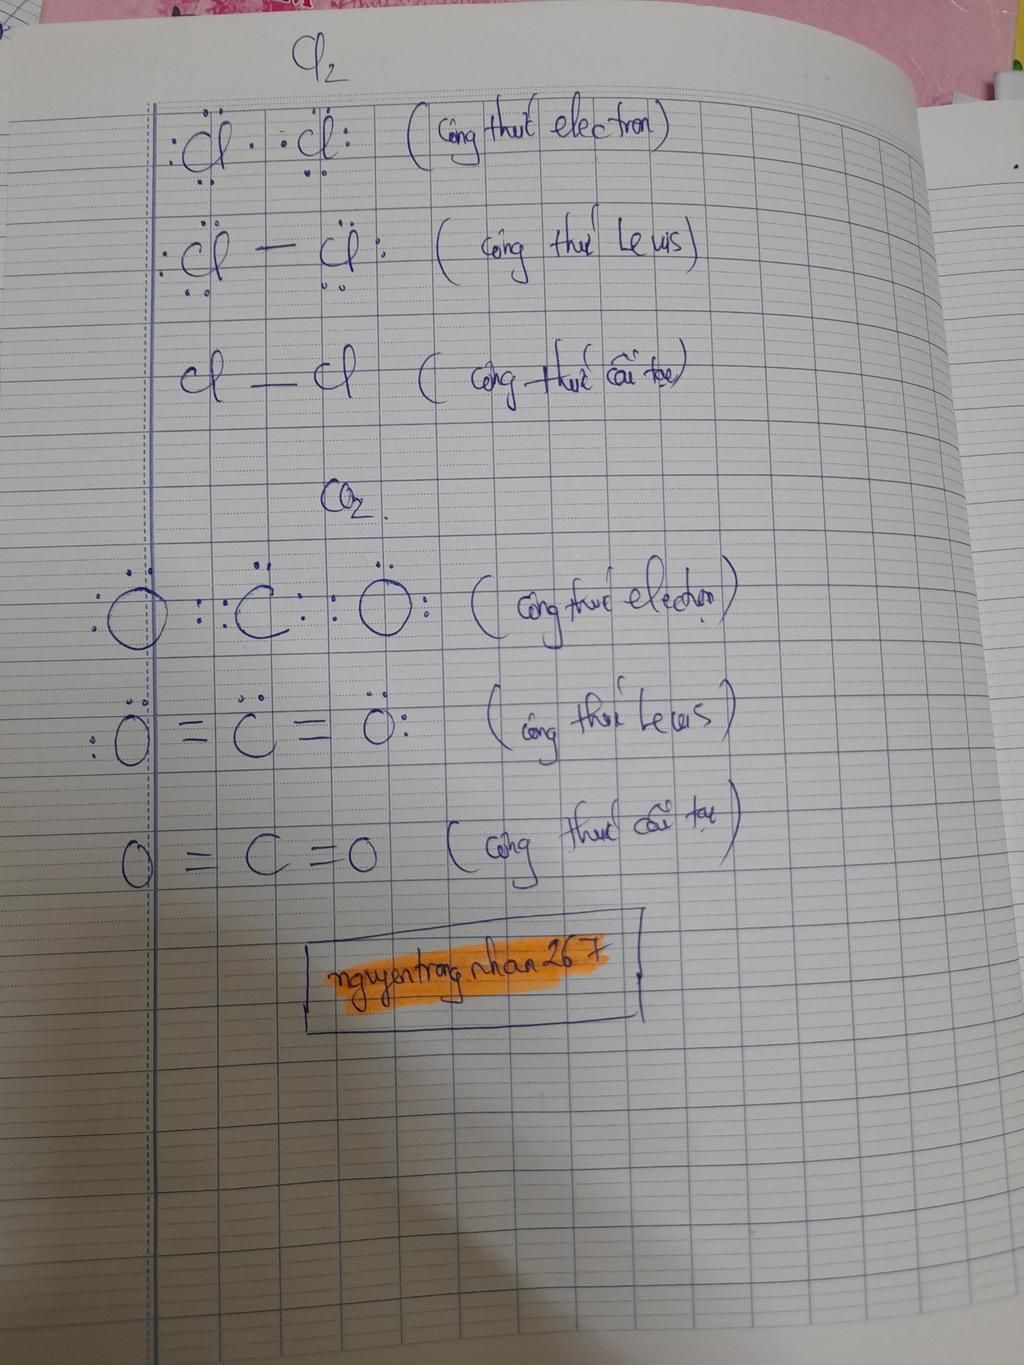 Cl₂
:Cl· ·Cl: (Công thức electron)
:Cl — Cl: (công thức Lewis)
Cl — Cl (công thức cấu tạo)
CO₂
:O: :C: :O: (công thức electron)
:O = C = O: (công thức Lewis)
O = C = O (công thức cấu tạo)
nguyentrong.nhan267